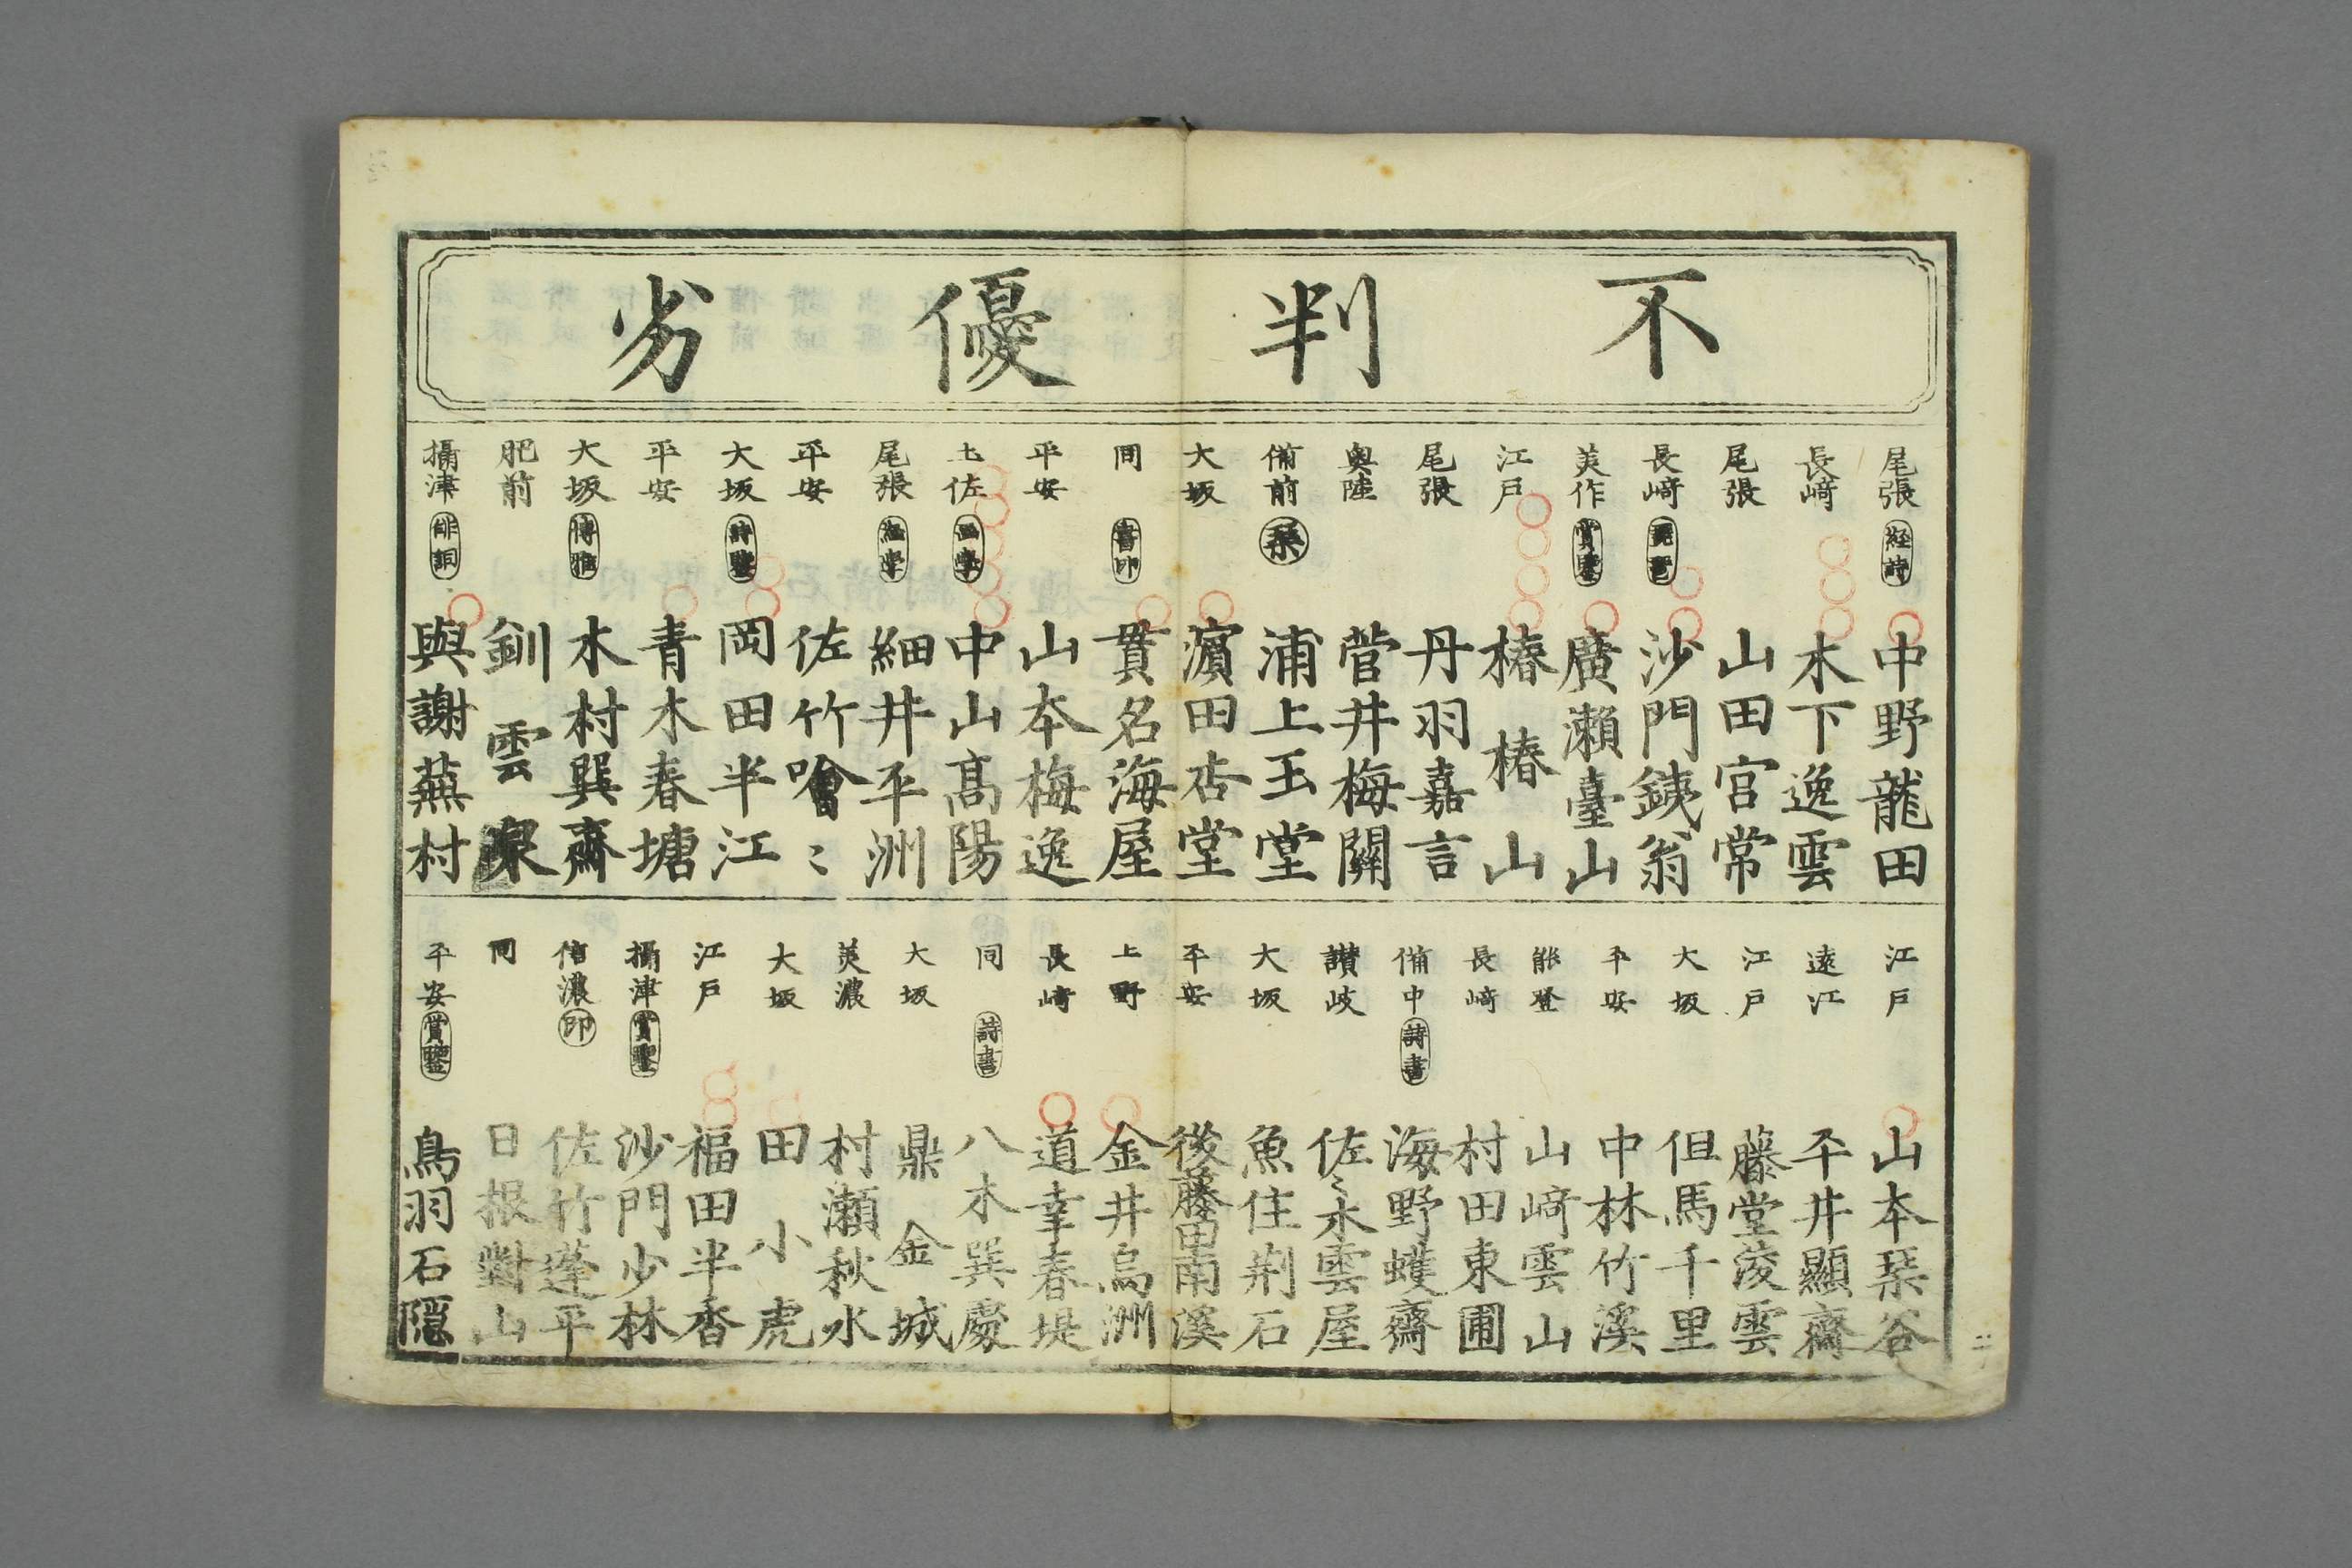 不判優劣
尾張 経詩 中野龍田
長﨑 木下逸雲
尾張 山田宮常
長﨑 沙門銕翁
美作 賞鑒 廣瀬臺山
江戸 椿椿山
尾張 丹羽嘉言
奥陸 菅井梅關
備前 琹 浦上玉堂
大坂 濵田杏堂
同 書印 貫名海屋
平安 山本梅逸
土佐 画学 中山髙陽
尾張 経学 細井平洲
平安 佐竹噲〻
大坂 詩鑒 岡田半江
平安 青木春塘
大坂 博雅 木村巽齋
肥前 釧雲泉
攝津 俳詞 與謝蕪村
江戸 山本琹谷
遠江 平井顯齋
江戸 藤堂凌雲
大坂 但馬千里
平安 中林竹溪
能登 山﨑雲山
長﨑 村田東圃
備中 詩書 海野蠖齋
讃岐 佐〻木雲屋
大坂 魚住荆石
平安 後藤田南溪
上野 金井烏洲
長﨑 道幸春堤
同 詩書 八木巽慶
大坂 鼎金城
美濃 村瀬秋水
大坂 田小虎
江戸 福田半香
攝津 賞鑒 沙門少林
信濃 印 佐竹蓬平
同 日根對山
平安 賞鑒 鳥羽石隠